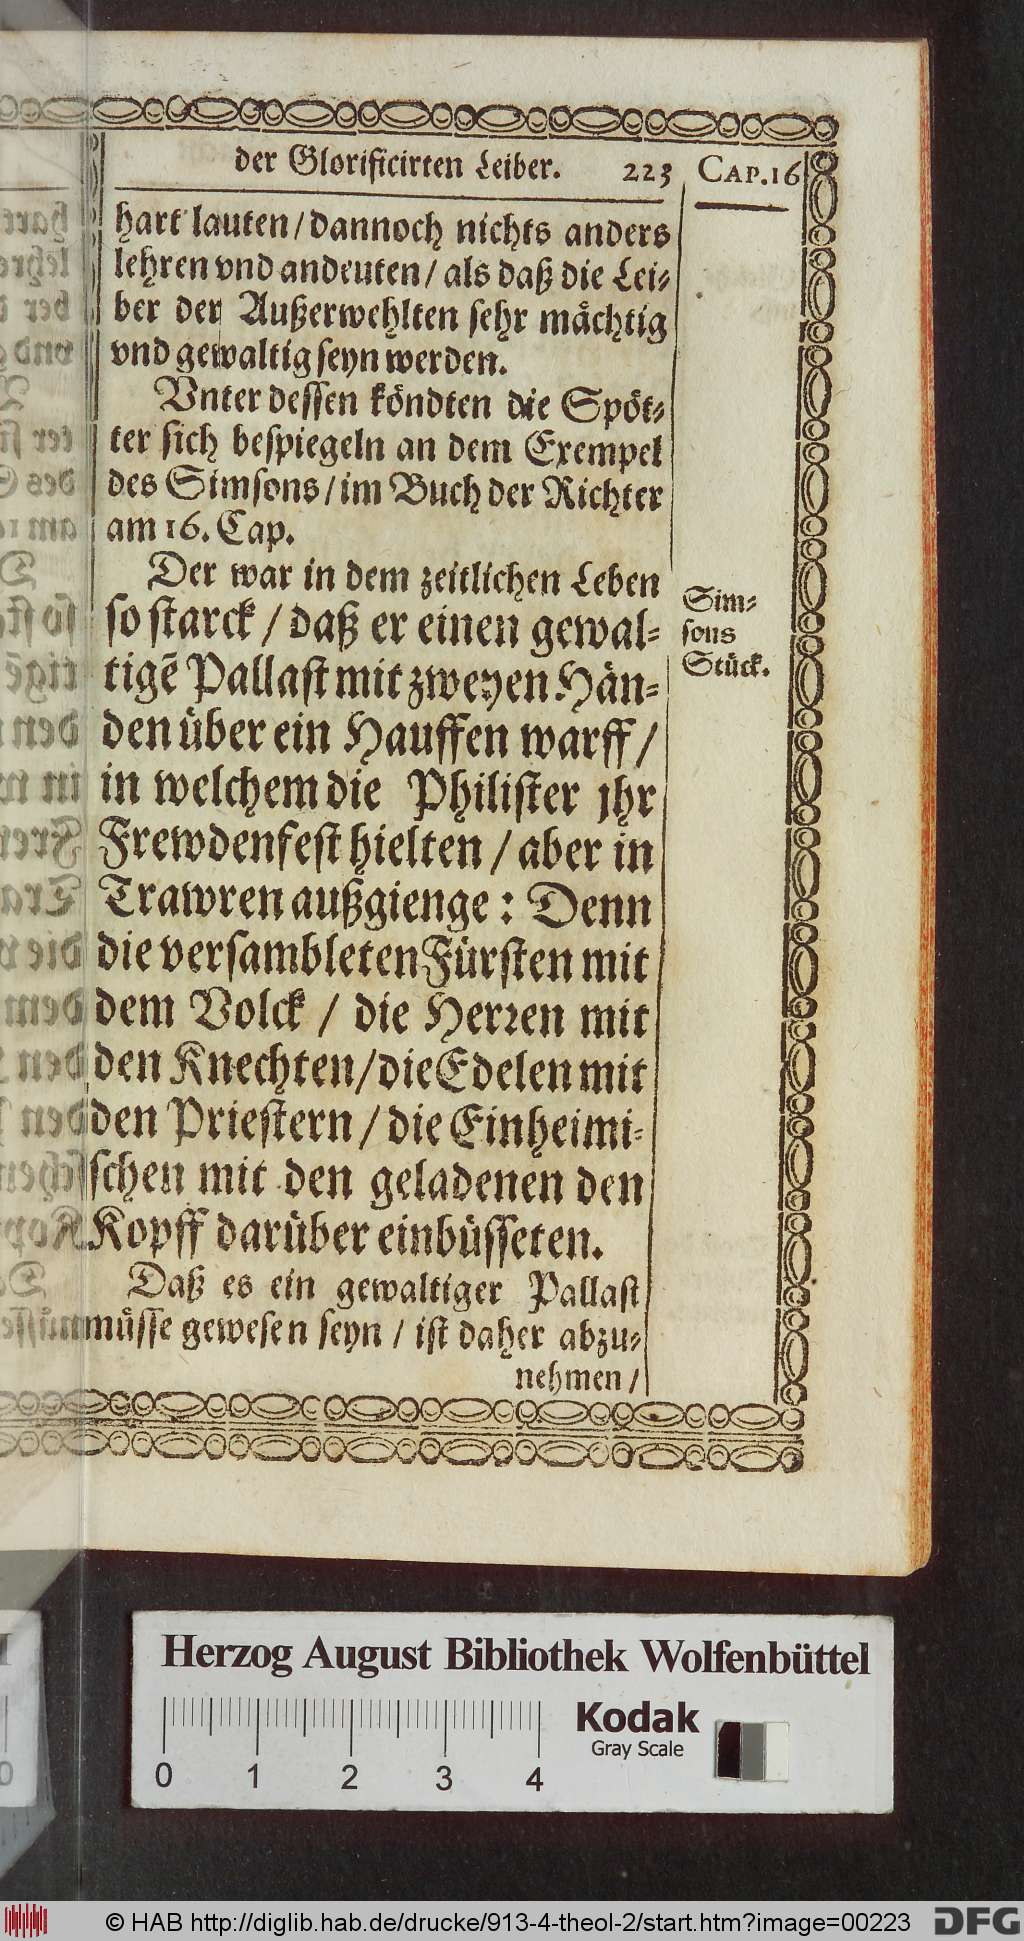 der Glorificirten Leiber. 223 CAP.16
hart lauten / dannoch nichts anders
lehren vnd andeuten / als daß die Lei-
ber der Außerwehlten sehr mächtig
vnd gewaltig seyn werden.
Vnter dessen köndten die Spöt-
ter sich bespiegeln an dem Exempel
des Simsons / im Buch der Richter
am 16. Cap.
Der war in dem zeitlichen Leben
so starck / daß er einen gewal-
tigẽ Pallast mit zweyen Hän-
den über ein Hauffen warff /
in welchem die Philister jhr
Frewdenfest hielten / aber in
Trawren außgienge : Denn
die versambleten Fürsten mit
dem Volck / die Herren mit
den Knechten / die Edelen mit
den Priestern / die Einheimi-
schen mit den geladenen den
Kopff darüber einbüsseten.
Daß es ein gewaltiger Pallast
müsse gewesen seyn / ist daher abzu-
nehmen /
Sim-
sons
Stück.
Herzog August Bibliothek Wolfenbüttel
Kodak
Gray Scale
0 1 2 3 4
© HAB http://diglib.hab.de/drucke/913-4-theol-2/start.htm?image=00223
DFG